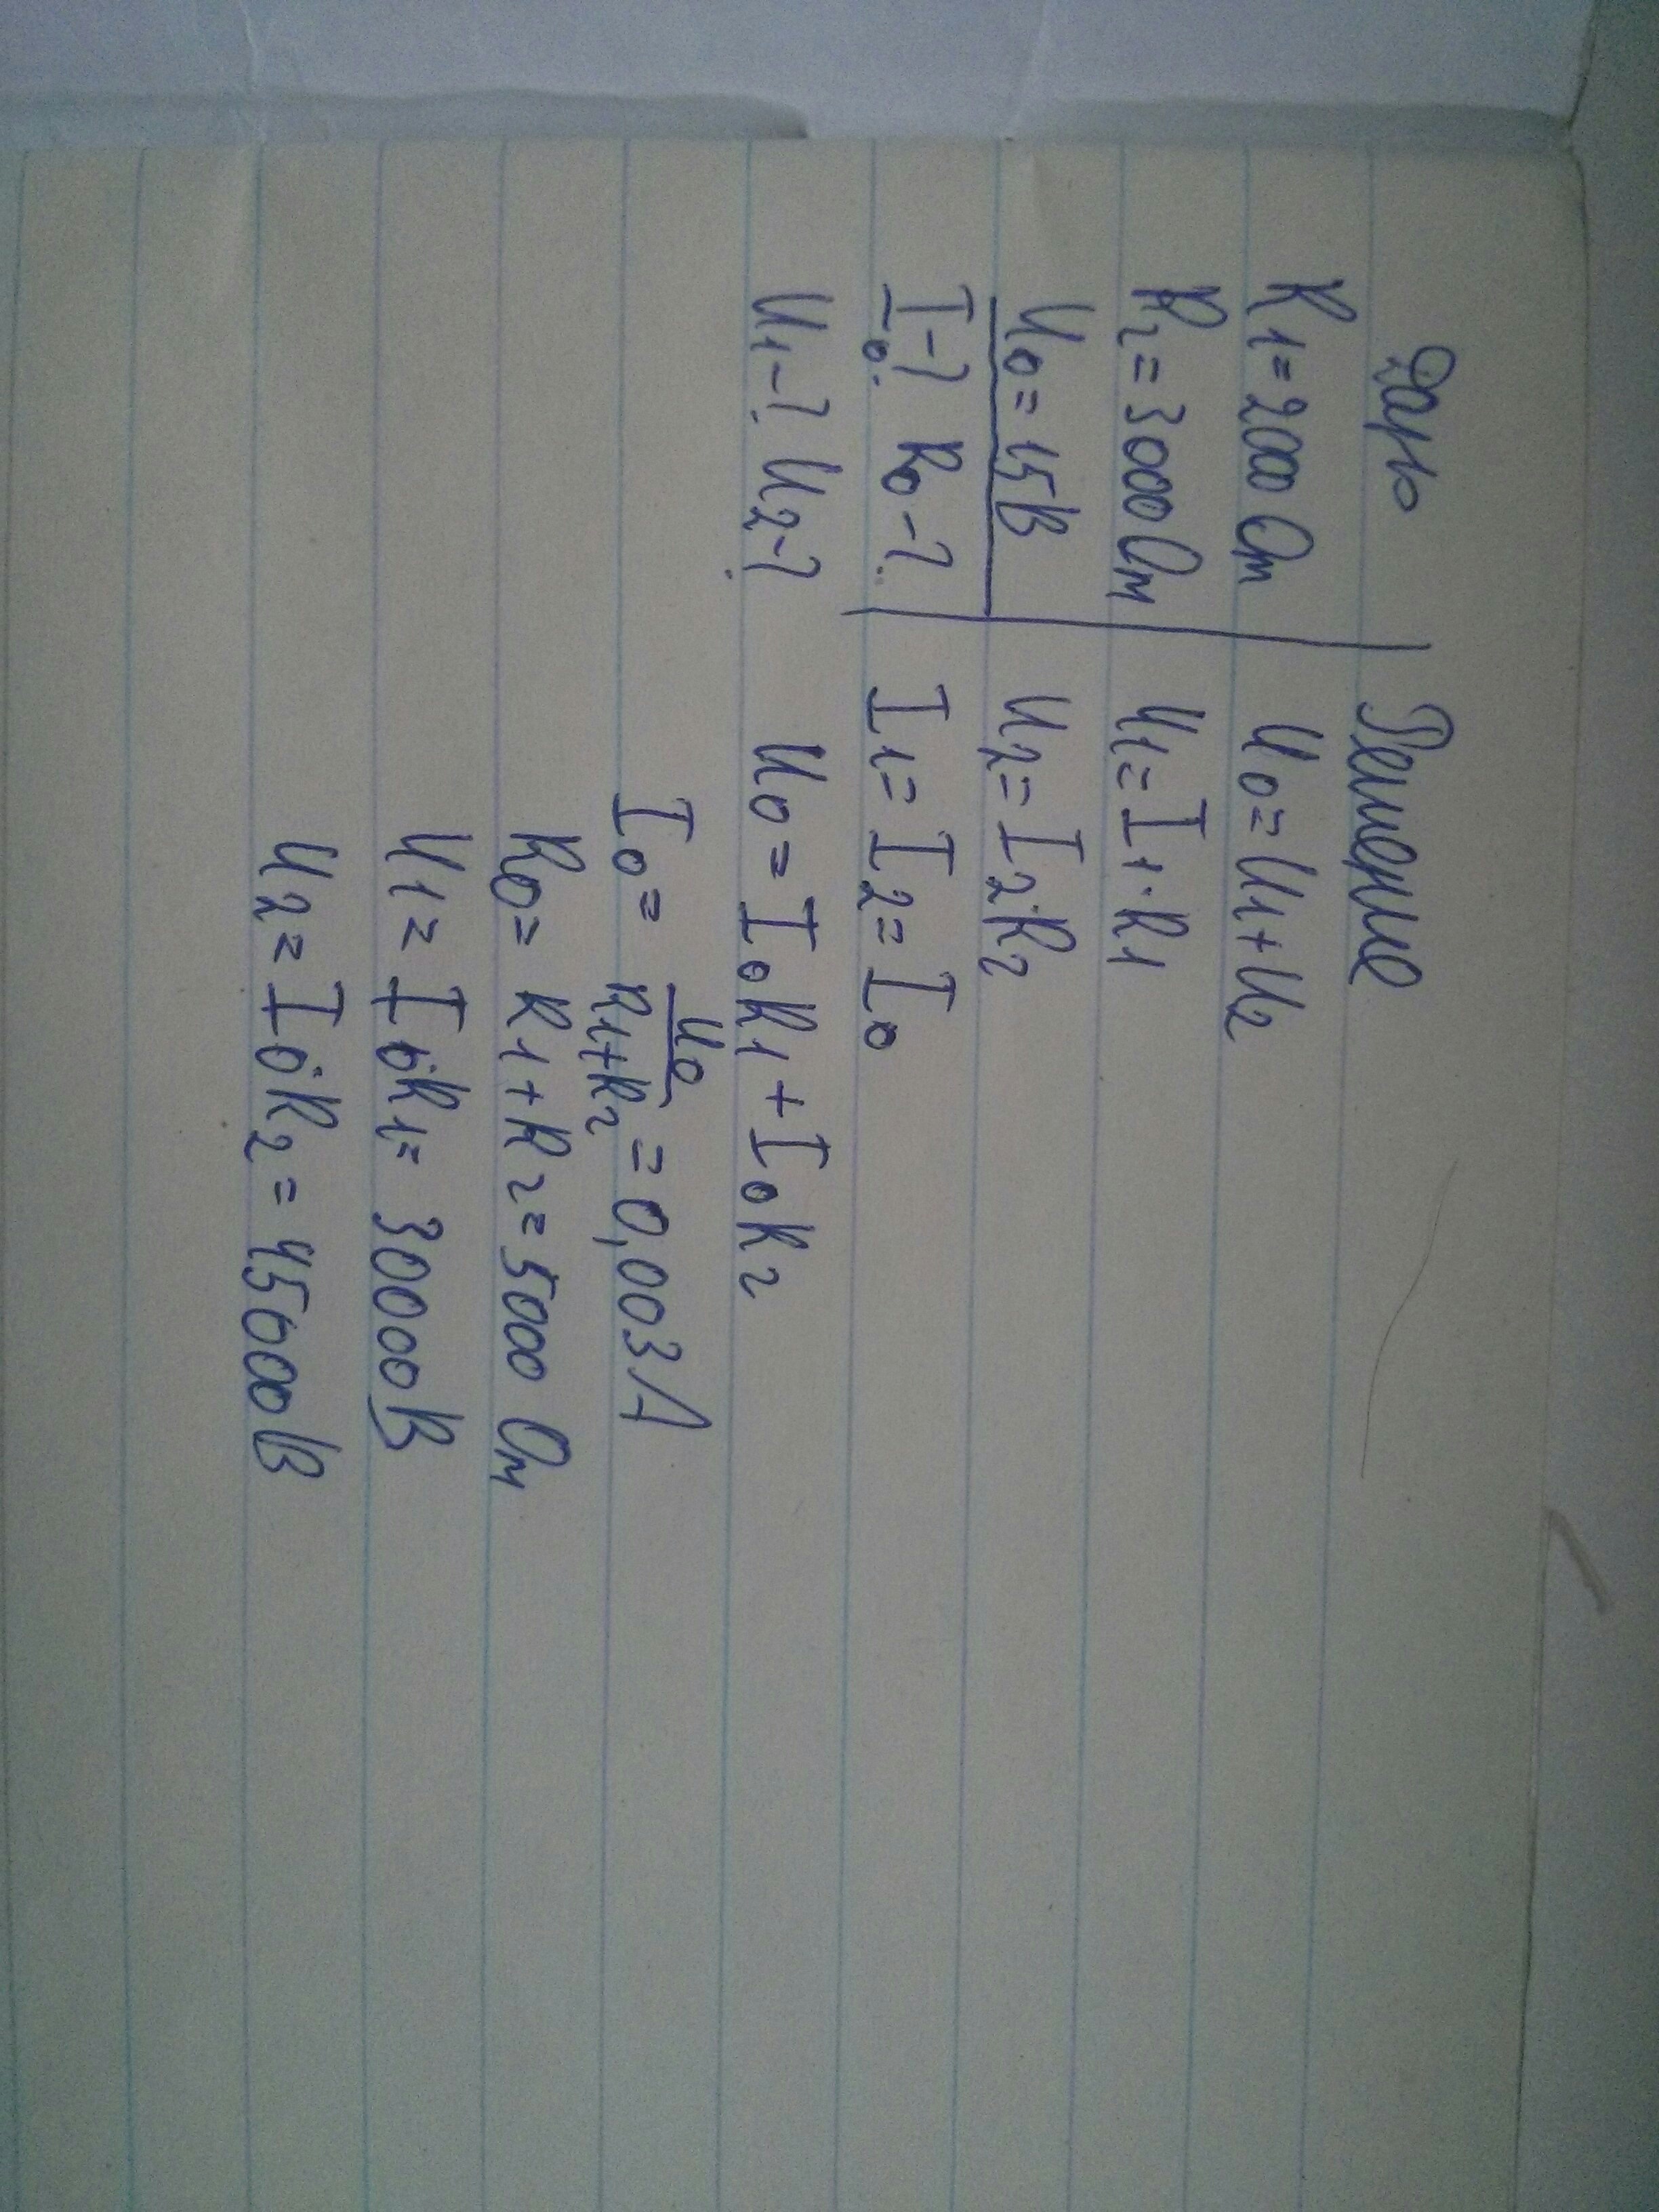 Дано
R1=2000 Ом
R2=3000 Ом
U0=15В
I0-? R0-?
U1-? U2-?
Решение
U0=U1+U2
U1=I1·R1
U2=I2·R2
I1=I2=I0
U0=I0R1+I0R2
I0=U0/R1+R2=0,003А
R0=R1+R2=5000 Ом
U1=I0·R1=30000В
U2=I0·R2=45000В